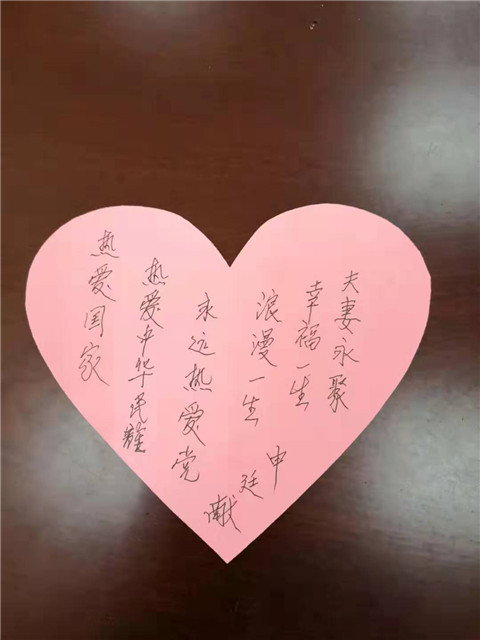 夫妻永聚
幸福一生
浪漫一生
永远热爱党
热爱中华民
热爱国家
申廷